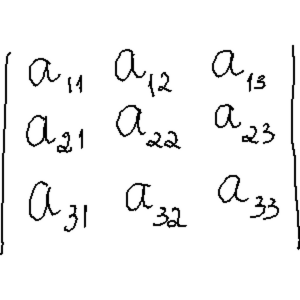 | a₁₁ a₁₂ a₁₃ |
| a₂₁ a₂₂ a₂₃ |
| a₃₁ a₃₂ a₃₃ |